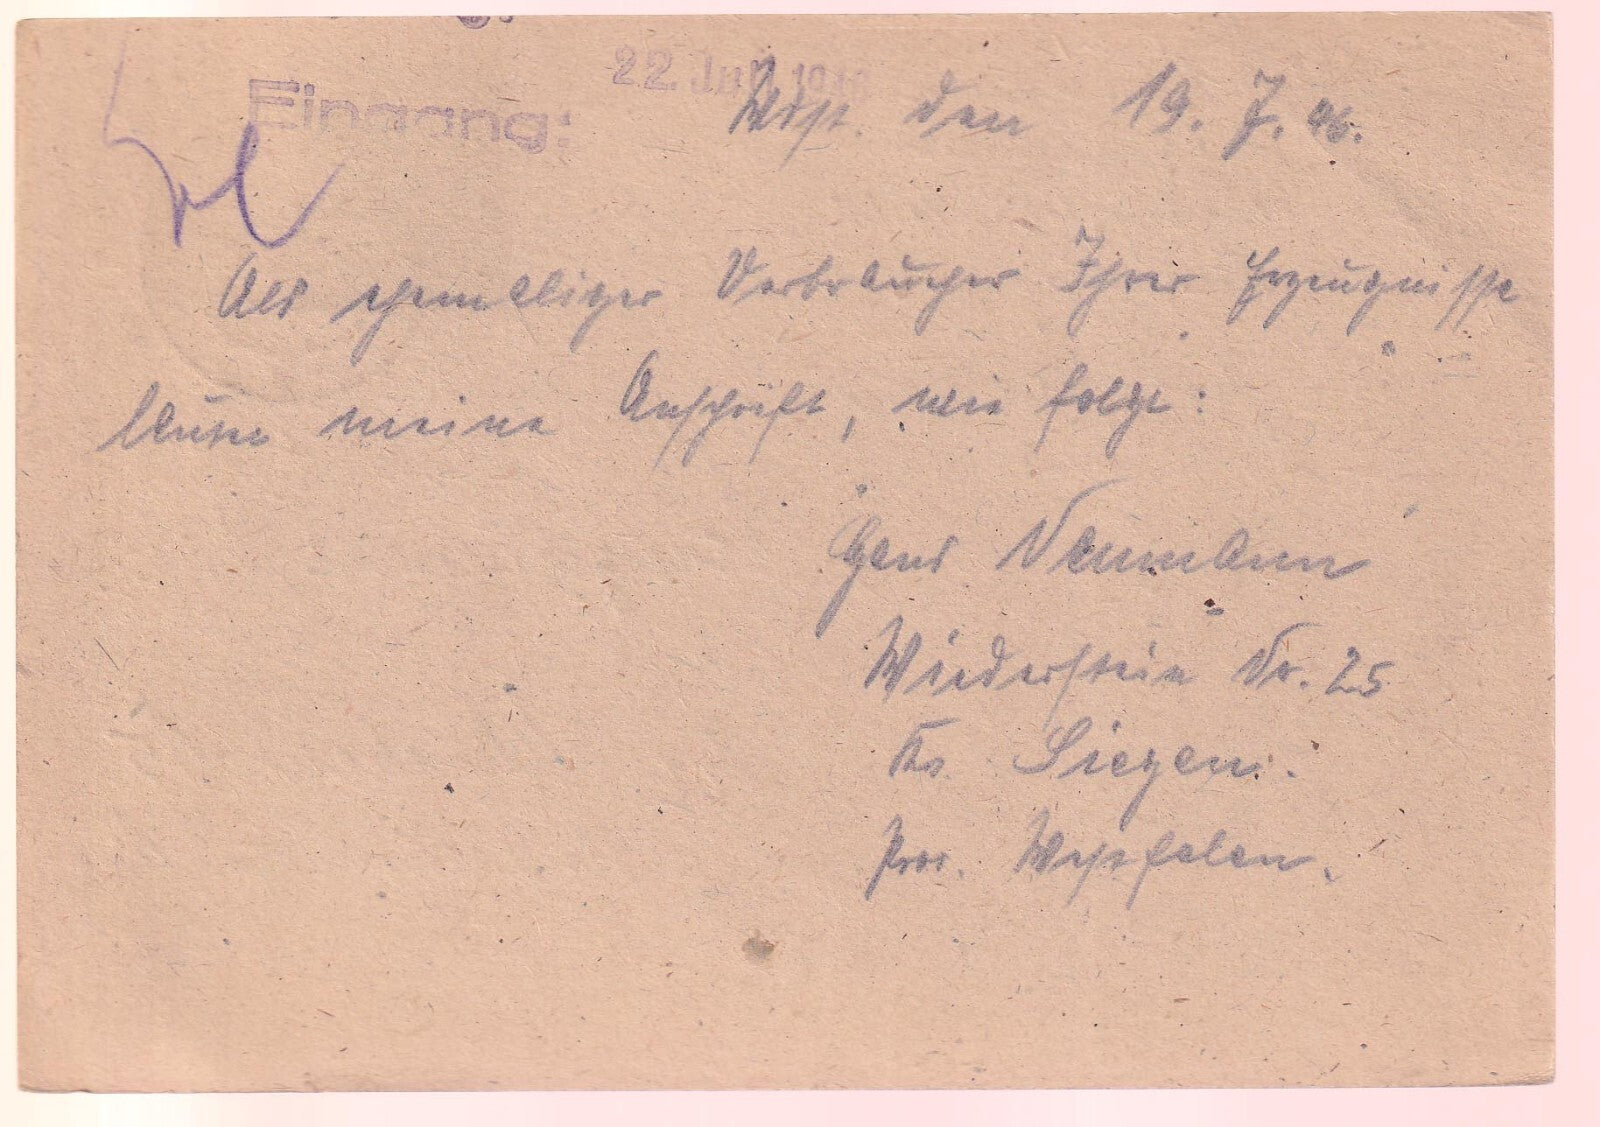 22. Juli 1946
Eingang:
Wdst. den 19. 7. 46.
Als ehemaliger Verbraucher Ihrer Erzeugnisse
lautet meine Anschrift, wie folgt:
Hans Neumann
Wiederstein Nr. 25
Kr. Siegen.
Prov. Westfalen.